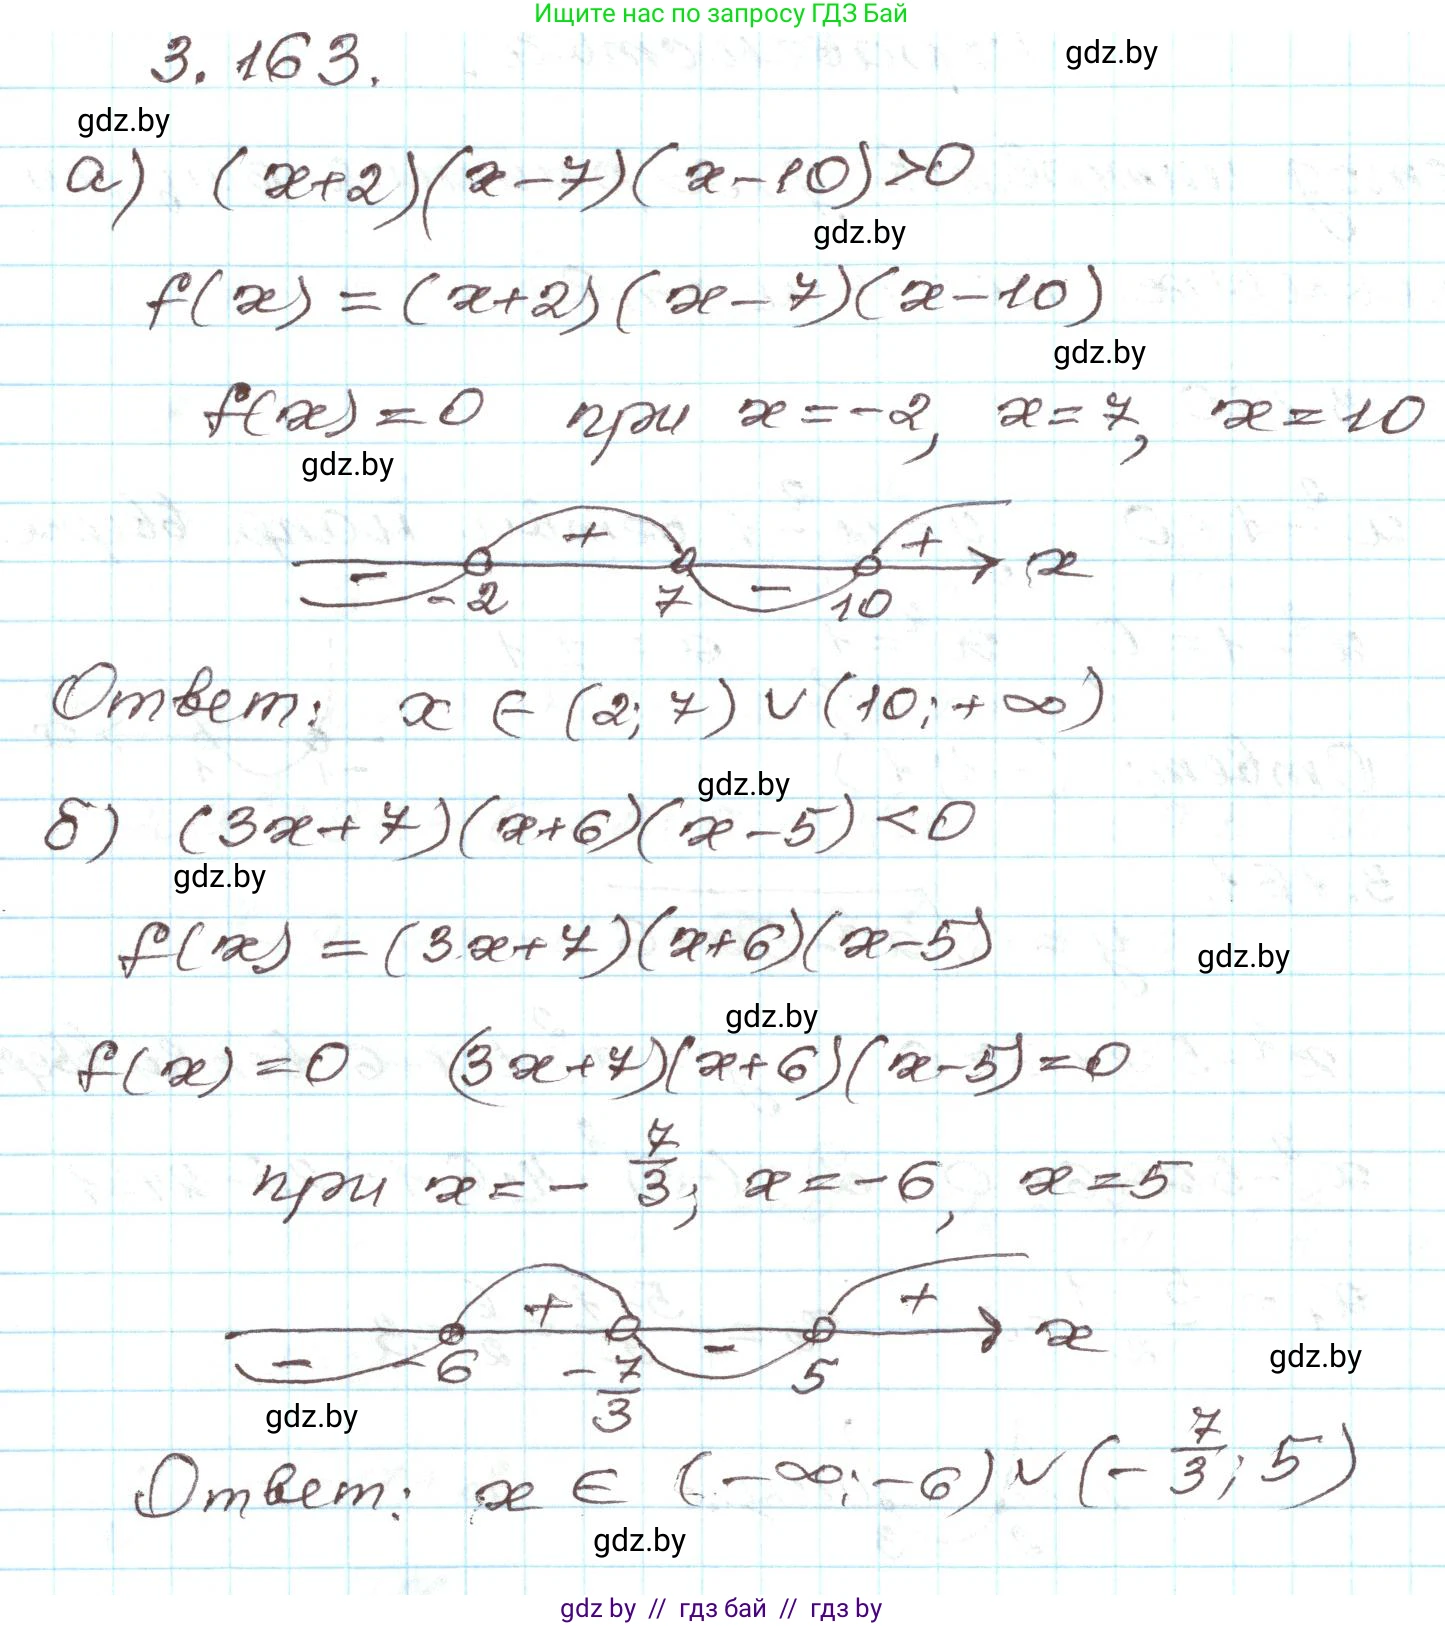 Ищите нас по запросу ГДЗ Бай
3.163.
gdz.by
gdz.by
а) (x+2)(x-7)(x-10)>0
gdz.by
f(x)=(x+2)(x-7)(x-10)
gdz.by
f(x)=0 при x=-2, x=7, x=10
gdz.by
- + - + x
-2 7 10
Ответ: x ∈ (2; 7) ∪ (10; +∞)
gdz.by
б) (3x+7)(x+6)(x-5)<0
gdz.by
f(x)=(3x+7)(x+6)(x-5)
gdz.by
gdz.by
f(x)=0 (3x+7)(x+6)(x-5)=0
при x=-7/3; x=-6, x=5
- + - + x
-6 -7/3 5
gdz.by
gdz.by
Ответ: x ∈ (-∞; -6) ∪ (-7/3; 5)
gdz.by
gdz by // гдз бай // гдз by